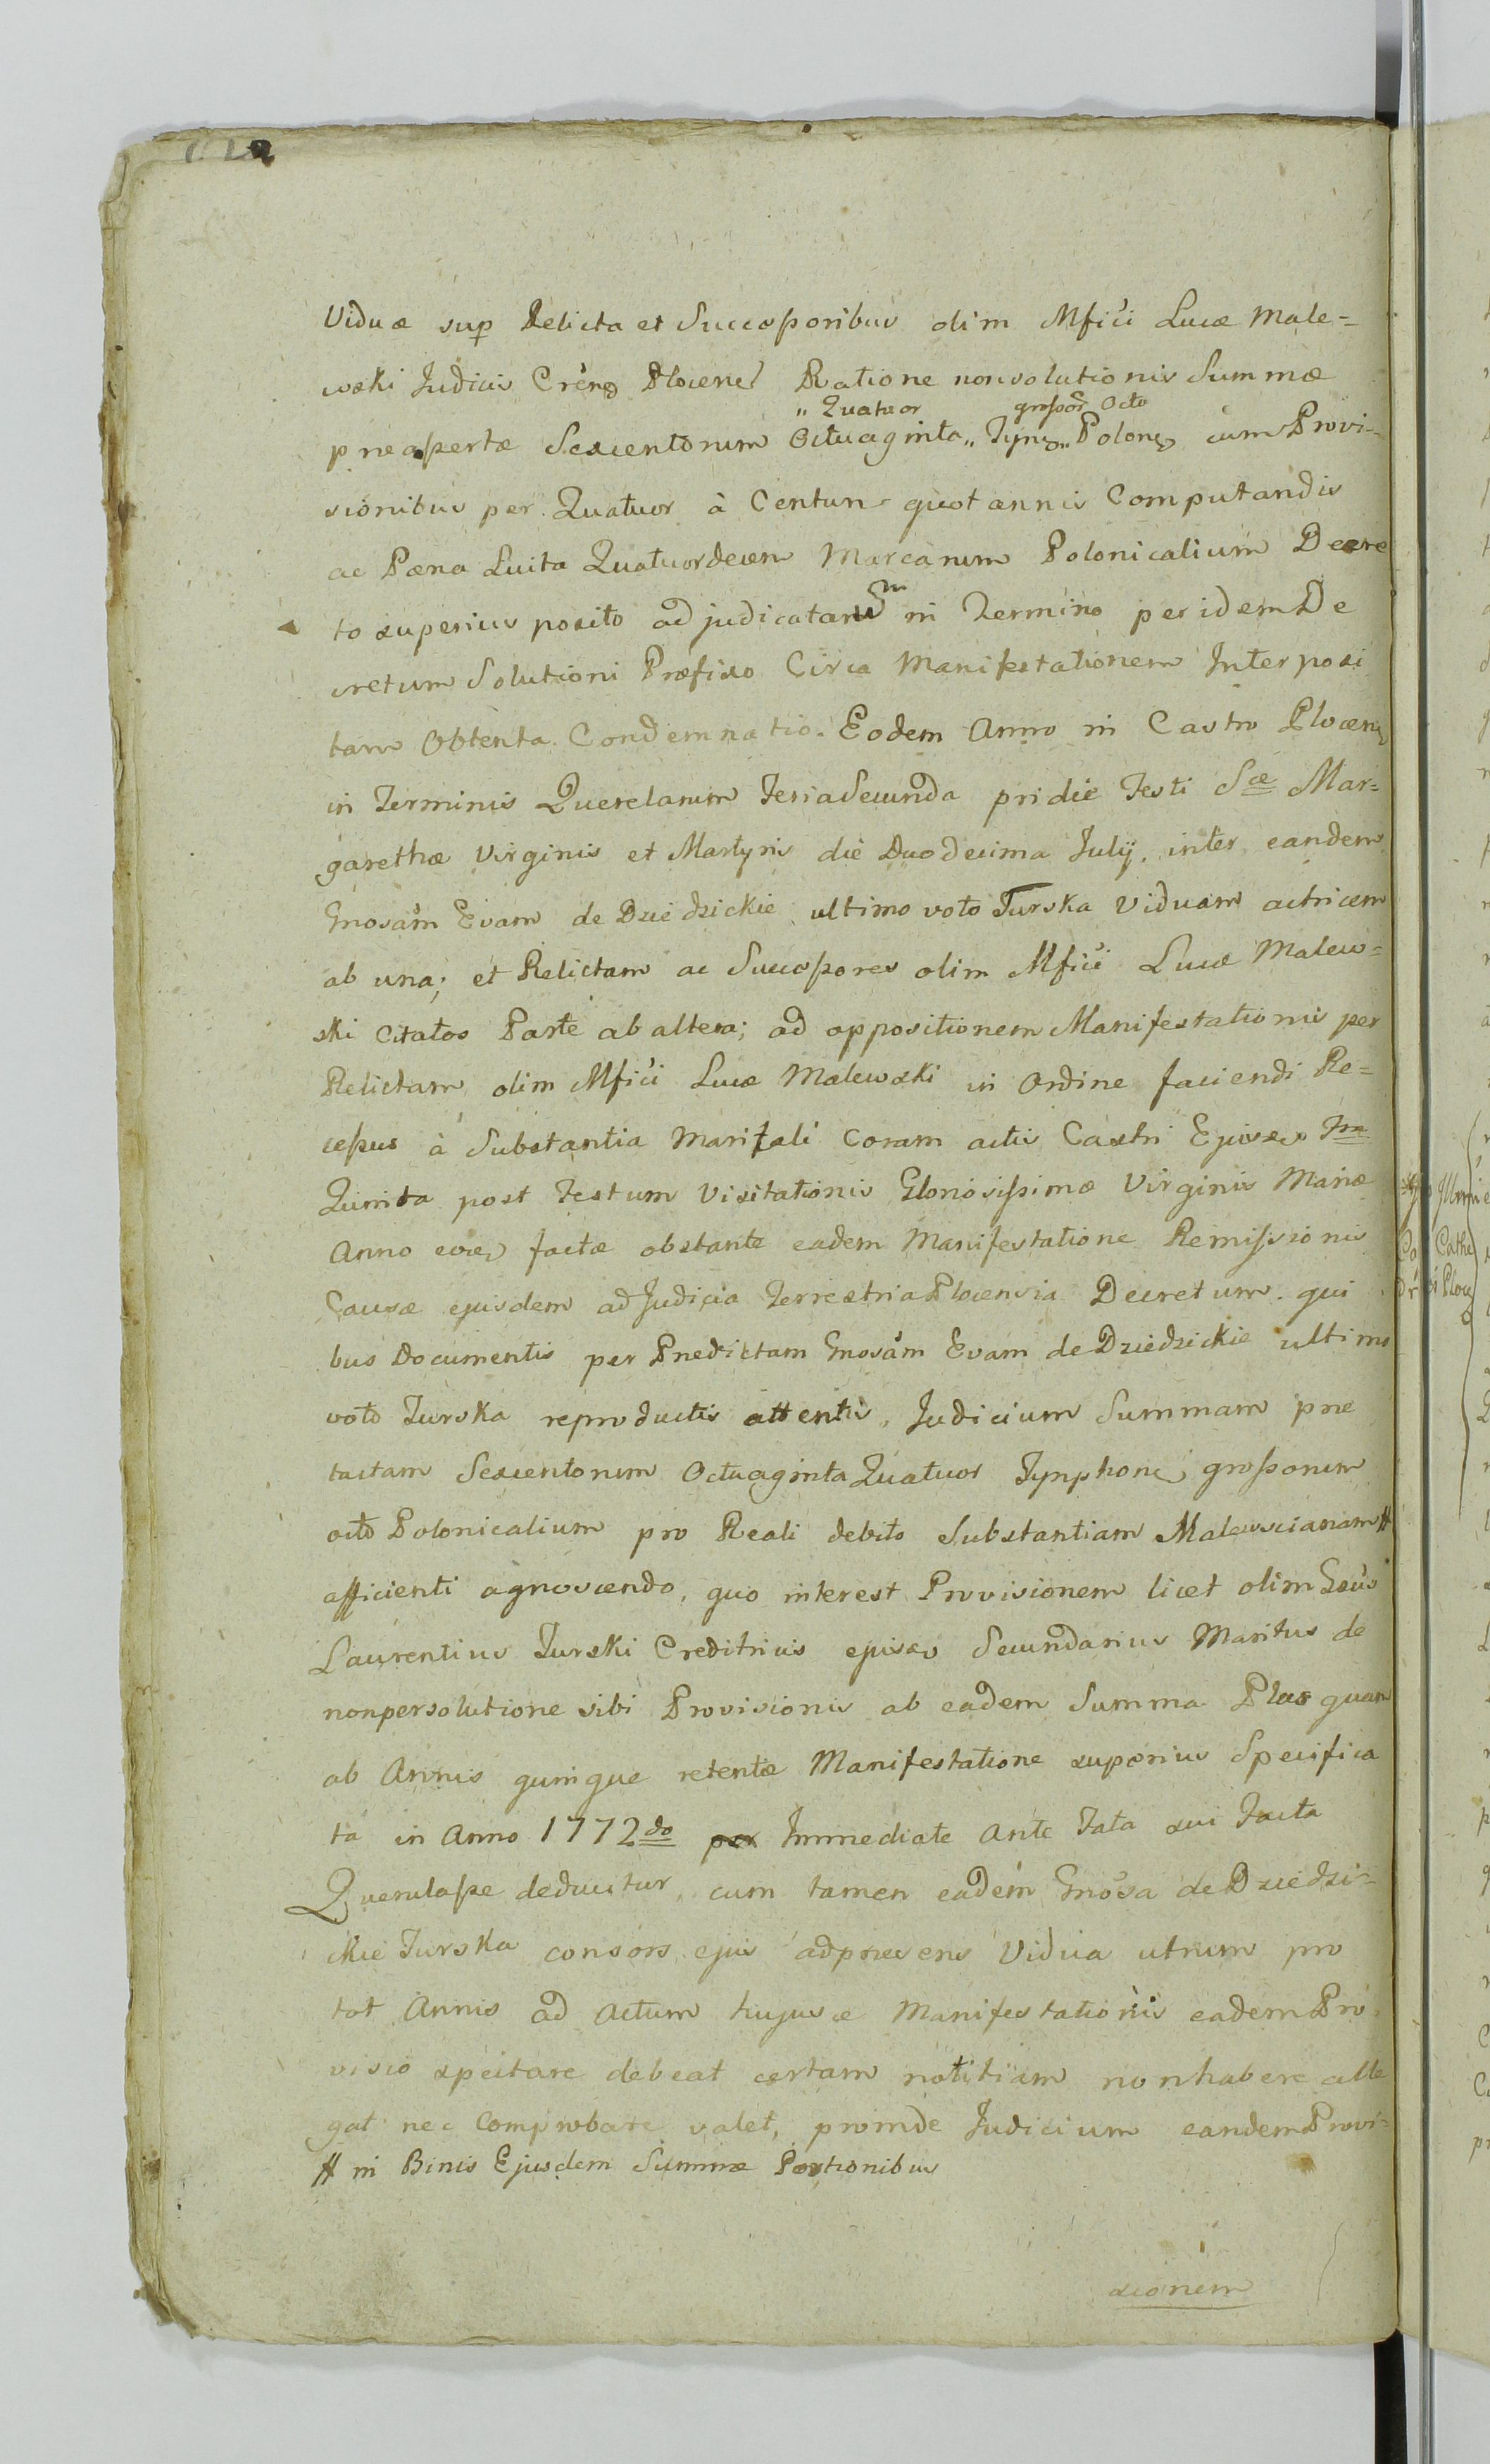 Viduæ sup Relicta et Successoribus olim Mfici Lucæ Male=
wski Judicis Creng Plocenę Ratione nonsolutionis Summæ
„ Quatuor grossor Octo
præapertæ Sexcentorum Octuaginta„ Tynę„ Polonę cum Provi-
sionibus per Quatuor à Centum quotannis Computandis
ac Pæna Luita Quatuordecem Marcarum Polonicalium Decre
to superius posito adjudicatam in Termino per idem De
cretum Solutioni Præfixo Circa Manifestationem Interposi
tam Obtenta Condemnatio. Eodem Anno in Castro Plocenę
in Terminis Querelarum Feria Secunda pridie Festi Scæ Mar=
garethæ Virginis et Martyris die Duodecima July, inter eandem
Gnosam Evam de Dziedzickie ultimo voto Turska Viduam actricem
ab una; et Relictam ac Successores olim Mfici Lucæ Malew=
ski Citatos Parte ab altera; ad oppositionem Manifestationis per
Relictam olim Mfici Lucæ Malewski in Ordine faciendi Re=
cessus à Substantia Maritali Coram actis Castri Fra
Quinta post Festum Visitationis Gloriosissimæ Virginis Mariæ
Anno eodę factæ obstante eadem Manifestatione Remissionis
Causæ ejusdem ad Judicia Terrestria Plocensia Decretum. qui
bus Documentis per Prædictam Gnosam Evam de Dziedzickie ultimo
voto Turska reproductis attentis, Judicium Summam præ
tactam Sexcentorum Octuaginta Quatuor Tynphonę grossorum
octo Polonicalium pro Reali debito Substantiam Malewscianam #
afficienti agnoscendo, quo interest Provisionem licet olim Gsus
Laurentius Turski Creditricis ejusdę Secundarius Maritus de
nonpersolutione sibi Provisionis ab eadem Summa Plus quam
ab Annis quinque retentæ Manifestatione superius Specifica
ta in Anno 1772do per Immediate Ante Fata sui Facta
Querulasse deducitur, cum tamen eadem Gnosa de Dziedzi-
ckie Turska consors ejus adpræsens Vidua utrum pro
tot Annis ad Actum hujusce Manifestationis eadem Pro-
visio spectare debeat certam notitiam non habere alle
gat nec Comprobare valet, proinde Judicium eandem Provi-
# in Binis Ejusdem Summæ Portionibus
sionem